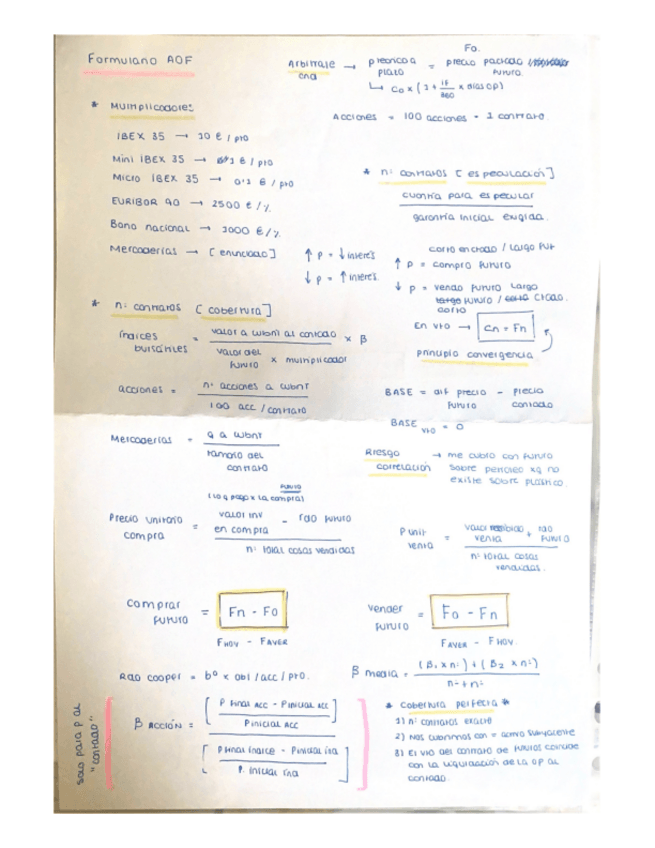 Formulario AOF
Arbitraje → precio a plazo = precio pactado futuro
F0.
↳ C0 x (1 + if/360 x días op)
Acciones = 100 acciones = 1 contrato.
* Multiplicadores
IBEX 35 → 10 € / pto
Mini IBEX 35 → 1 € / pto
Micro IBEX 35 → 0'1 € / pto
EURIBOR 90 → 2500 € / %
Bono nacional → 1000 € / %
Mercaderías → [enunciado]
* nº contratos [especulación]
cuantía para especular
garantía inicial exigida.
↑ p = ↓ interés
↓ p = ↑ interés
corto en ctado / largo fut
↑ p = compro futuro
↓ p = vendo futuro largo
corto futuro / ctado.
En vto → Cn = Fn
principio convergencia
* nº contratos [cobertura]
índices bursátiles = valor a cubrir al contado / valor del futuro x multiplicador x β
acciones = nº acciones a cubrir / 100 acc / contrato
BASE = dif precio futuro - precio contado
BASE vto = 0
Mercaderías = q a cubrir / tamaño del contrato
Riesgo correlación → me cubro con futuro
sobre petróleo xq no
existe sobre plástico.
futuro
(lo q pago x la compra)
Precio unitario compra = valor inv en compra - rdo futuro / nº total cosas vendidas
P unit venta = valor recibido venta + rdo futuro / nº total cosas vendidas.
Comprar futuro = Fn - F0
F HOY - F AYER
Vender futuro = F0 - Fn
F AYER - F HOY
Rdo cooper = bº x obl / acc / pto.
β media = (β1 x nº) + (β2 x nº) / nº + nº
solo para p al "contado"
β ACCIÓN = [P final acc - P inicial acc / P inicial acc] / [P final índice - P inicial ind / P. inicial ind]
* Cobertura perfecta *
1) nº contratos exacto
2) Nos cubrimos con = activo subyacente
3) El vto del contrato de futuros coincide
con la liquidación de la op al
contado.